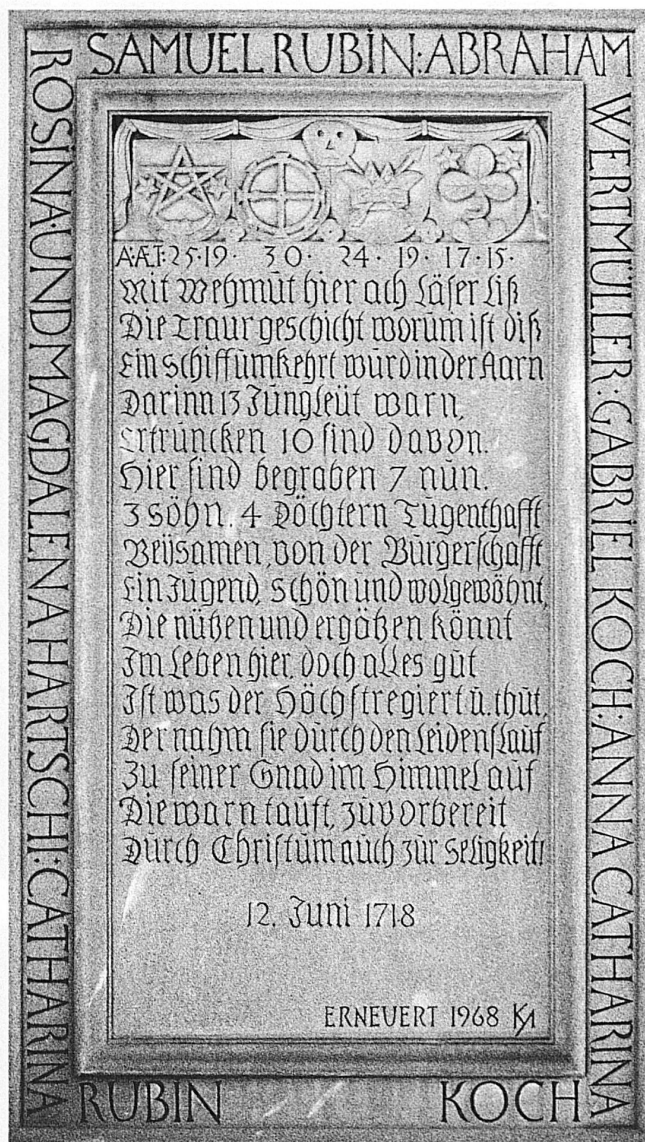 SAMUEL RUBIN: ABRAHAM
WERTMÜLLER·GABRIEL KOCH: ANNA CATHARINA
KOCH
ROSINA UND MAGDALENA HARTSCHI: CATHARINA
RUBIN
A·Æ.T: 25·19· 30· 24· 19· 17·15·
Mit Wehmut hier ach Läser Liß
Die Traurgeschicht worum ist diß
Ein Schiff umkehrt wurd in der Aarn
Darinn 13 Jung Leüt warn,
Ertruncken 10 sind davon.
Hier sind begraben 7 nun.
3 söhn. 4 Döchtern Tugenthafft
Beÿsamen, von der Burgerschafft
Ein Jugend, schön und wolgewöhnt,
Die nützen und ergötzen könnt
Im Leben hier, doch alles gut
Ist was der Höchst regiert u. thut,
Der nahm sie durch den Leidenslauf
Zu seiner Gnad im Himmel auf
Die warn tauft, zuvorbereit
Durch Christum auch zur Seligkeit!
12. Juni 1718
ERNEUERT 1968